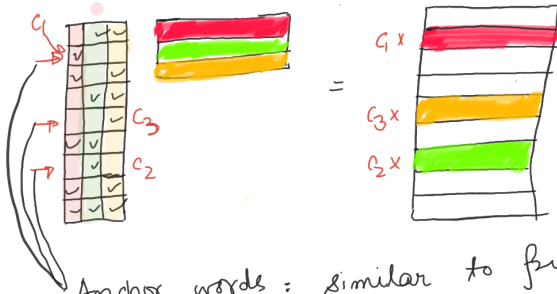 C1
C3
C2
=
C1 x
C3 x
C2 x
Anchor words : similar to